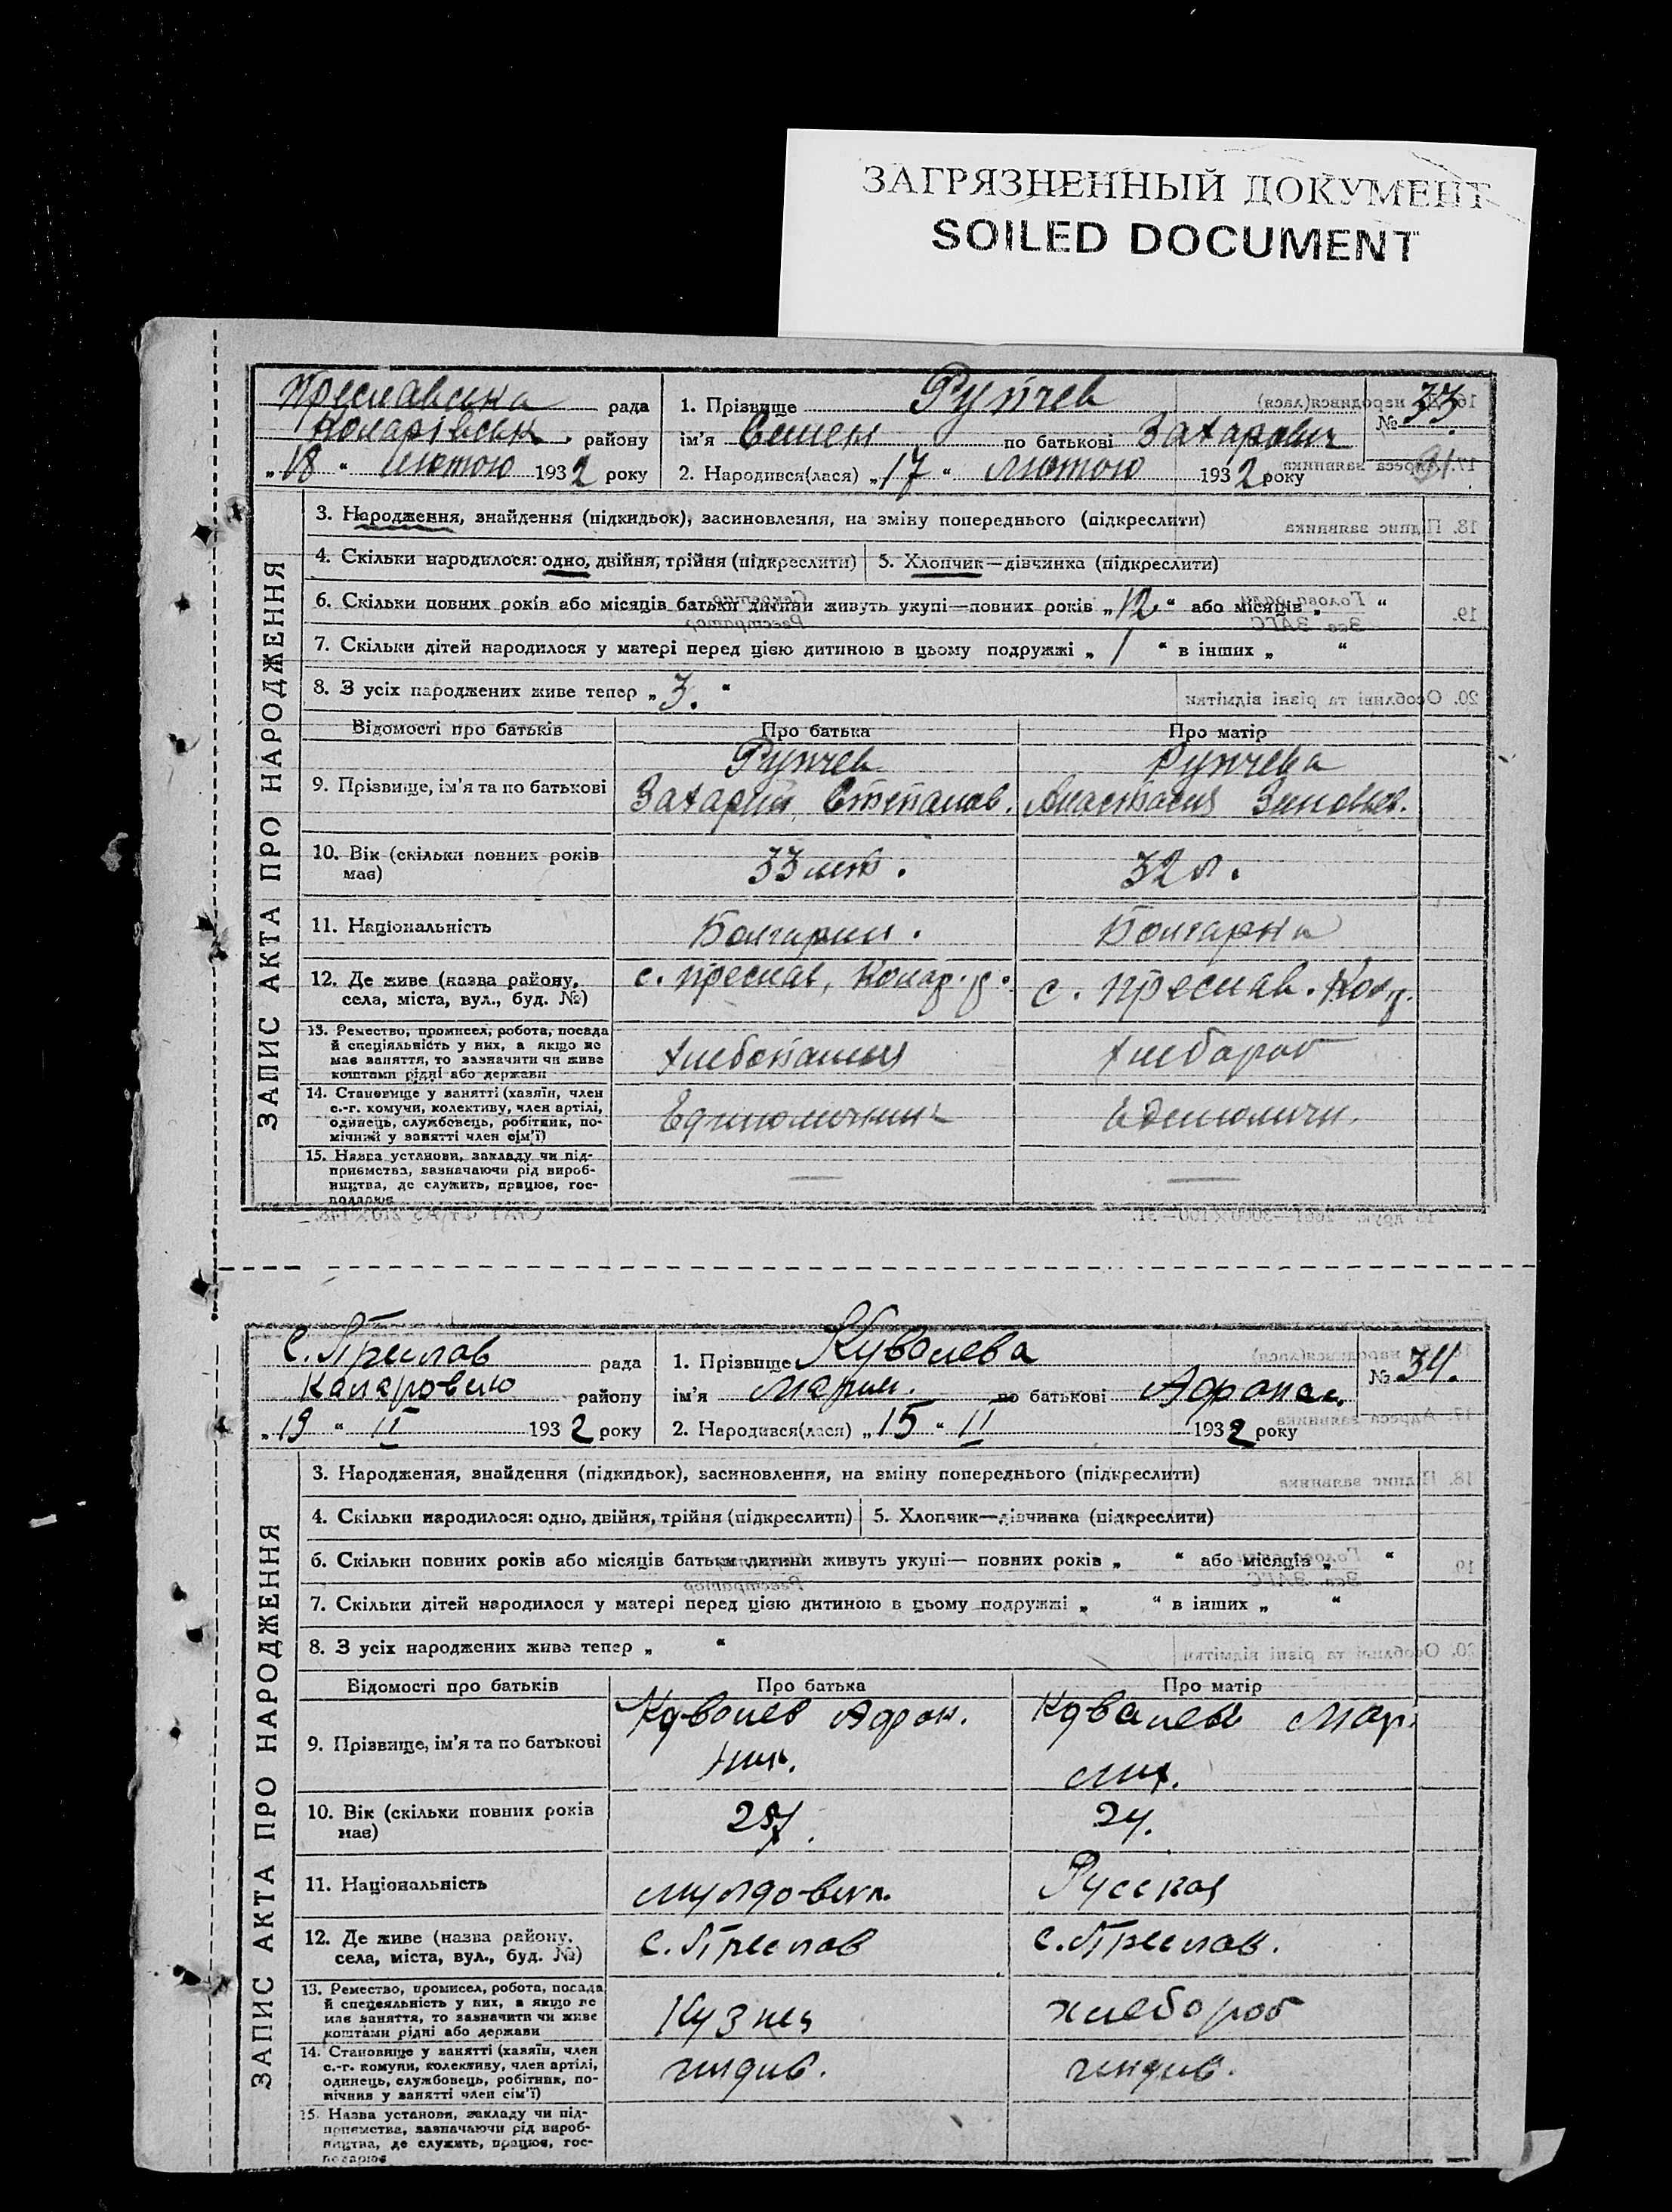 ЗАГРЯЗНЕННЫЙ ДОКУМЕНТ
SOILED DOCUMENT
Преславська рада
Коларівськ. району
„18“ лютого 1932 року
1. Прізвище Рупчев
ім'я Семен по батькові Захарович
№ 33.
2. Народився(лася) „17“ лютого 1932 року
31.
ЗАПИС АКТА ПРО НАРОДЖЕННЯ
3. Народження, знайдення (підкидьок), засиновлення, на зміну попереднього (підкреслити)
4. Скільки народилося: одно, двійня, трійня (підкреслити) 5. Хлопчик—дівчинка (підкреслити)
6. Скільки повних років або місяців батьки дитини живуть укупі—повних років „12“ або місяців „ “
7. Скільки дітей народилося у матері перед цією дитиною в цьому подружжі „1“ в інших „ “
8. З усіх народжених живе тепер „3.“
Відомості про батьків Про батька Про матір
Рупчев Рупчева
9. Прізвище, ім'я та по батькові Захарий Степанов. Анастасия Зиновьев.
10. Вік (скільки повних років має) 33 лет. 32 л.
11. Національність Болгарин. Болгарка
12. Де живе (назва району, с. Преслав, Колар. р. с. Преслав. Кол.
села, міста, вул., буд. №)
13. Ремество, промисел, робота, посада
й спеціяльність у них, а якщо не
має заняття, то зазначити чи живе
коштами рідні або держави
хлебороб
14. Становище у занятті (хазяїн, член
с.-г. комуни, колективу, член артілі,
одинець, службовець, робітник, по-
мічний у занятті член сім'ї)
Единоличник Единоличн.
15. Назва установи, закладу чи під-
приємства, зазначаючи рід вироб-
ництва, де служить, працює, гос-
подарює
— —
С. Преслав рада
району
„19“ II 1932 року
1. Прізвище Куволева
ім'я Мария. по батькові Афонас.
№ 34.
2. Народився(лася) „15“ II 1932 року
ЗАПИС АКТА ПРО НАРОДЖЕННЯ
3. Народження, знайдення (підкидьок), засиновлення, на зміну попереднього (підкреслити)
4. Скільки народилося: одно, двійня, трійня (підкреслити) 5. Хлопчик—дівчинка (підкреслити)
6. Скільки повних років або місяців батьки дитини живуть укупі— повних років „ “ або місяців „ “
7. Скільки дітей народилося у матері перед цією дитиною в цьому подружжі „ “ в інших „ “
8. З усіх народжених живе тепер „ “
Відомості про батьків Про батька Про матір
Куволев Афон. Мар.
9. Прізвище, ім'я та по батькові
Мих.
10. Вік (скільки повних років має) 24.
11. Національність Русская
12. Де живе (назва району, с. Преслав с. Преслав.
села, міста, вул., буд. №)
13. Ремество, промисел, робота, посада
й спецеяльність у них, а якщо не
має заняття, то зазначити чи живе
коштами рідні або держави
Кузнец хлебороб
14. Становище у занятті (хазяїн, член
с.-г. комуни, колективу, член артілі,
одинець, службовець, робітник, по-
мічния у занятті член сім'ї)
индив. индив.
15. Назва установи, закладу чи під-
приємства, зазначаючи рід вироб-
ництва, де служить, працює, гос-
подарює